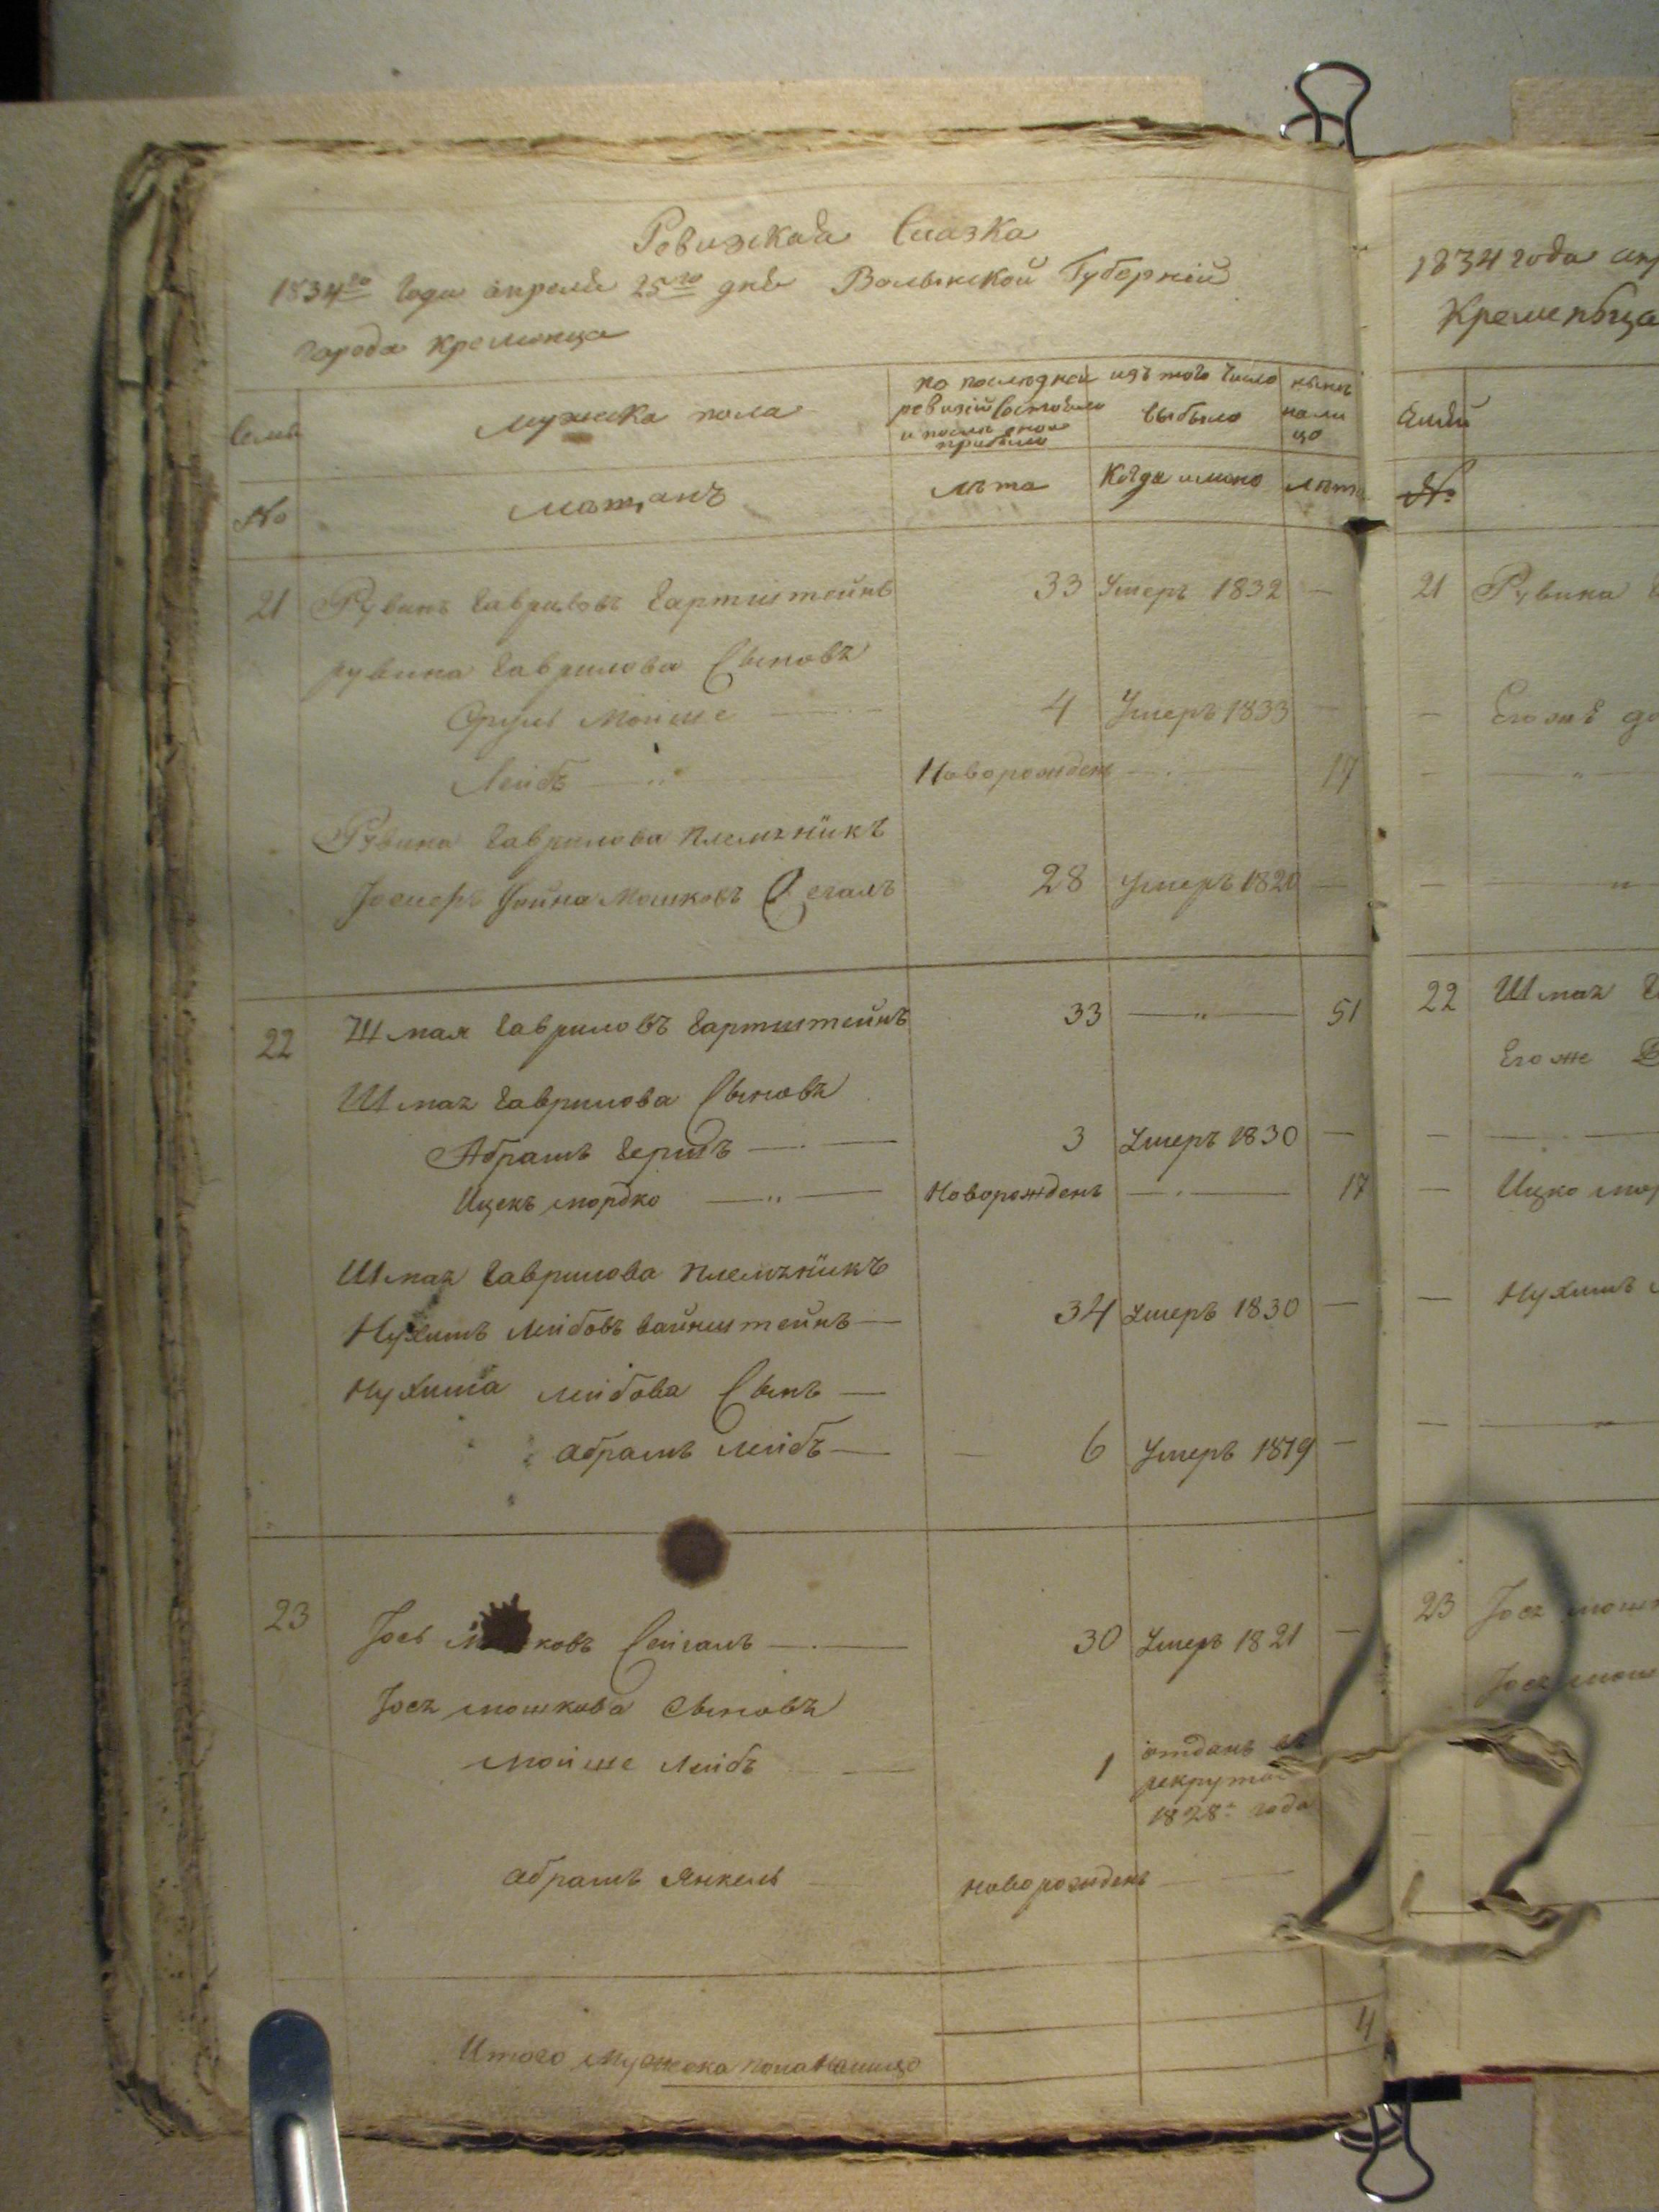 Ревизская Сказка
1834го Года апреля 25го дня Волынской Губерніи
города Кременца
Семьи
мужеска пола
по последней
ревизіи состояло
и после оной
прибыло
изъ того число
выбыло
нынѣ
нали
цо
№
мещанъ
лѣта
Когда имено
лѣта
21 Рувинъ Гавриловъ Гартштейнъ 33 Умеръ 1832 —
рувина Гаврилова Сыновя
Сруль Мойше 4 Умеръ 1833 —
Лейбъ Новорожденъ 17
Рувина Гаврилова племянникъ
Мошковъ Сегалъ 28 Умеръ 1820 —
22 Шмая Гавриловъ Гартштейнъ 33 51
Шмая Гаврилова Сыновя
Абрамъ Гершъ 3 Умеръ 1830 —
Ицекъ мордко Новорожденъ 17
Шмая Гаврилова племянникъ
Нухимъ Лейбовъ вайнштейнъ 34 Умеръ 1830 —
Нухима лейбова Сынъ
абрамъ лейбъ — 6 Умеръ 1819 —
23 Іось ковъ Сейгалъ 30 Умеръ 1821 —
Іося мошкова Сыновя
мойше Лейбъ 1 отданъ въ
рекруты
1828 года
абрамъ Янкель новорожденъ
Итого мужеска пола налицо 4
1834 года апр
Кременца
№
21 Рувина
Егожъ до
22 Шмая
Егоже
Ицко мор
Нухимъ
23 Іося мошк
Іося мош